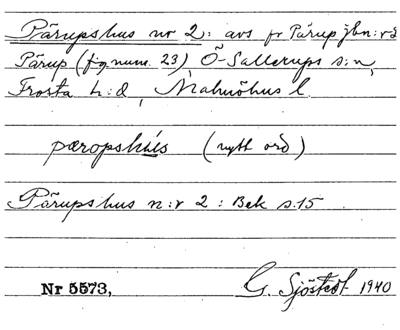 Pärupshus nr 2: avs fr Pärup jbn: vd
Pärup (fig.num. 23), Ö-Sallerups s:n,
Frosta h:d, Malmöhus l.
pæropshús (nytt ord)
Pärupshus n:r 2: Bek s.15
Nr 5573, G. Sjöstedt 1940